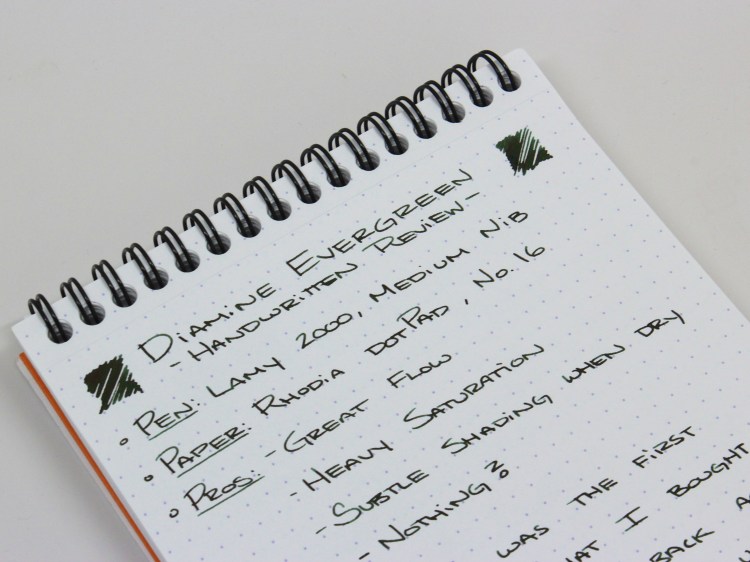 DIAMINE EVERGREEN
- HANDWRITTEN REVIEW -
° PEN: LAMY 2000, MEDIUM NiB
° PAPER: RHODIA dotPad, No. 16
° PROS: - GREAT FLOW
- HEAVY SATURATION
- SUBTLE SHADING WHEN DRY
- NOTHING?
WAS THE FIRST
I BOUGHT
BACK